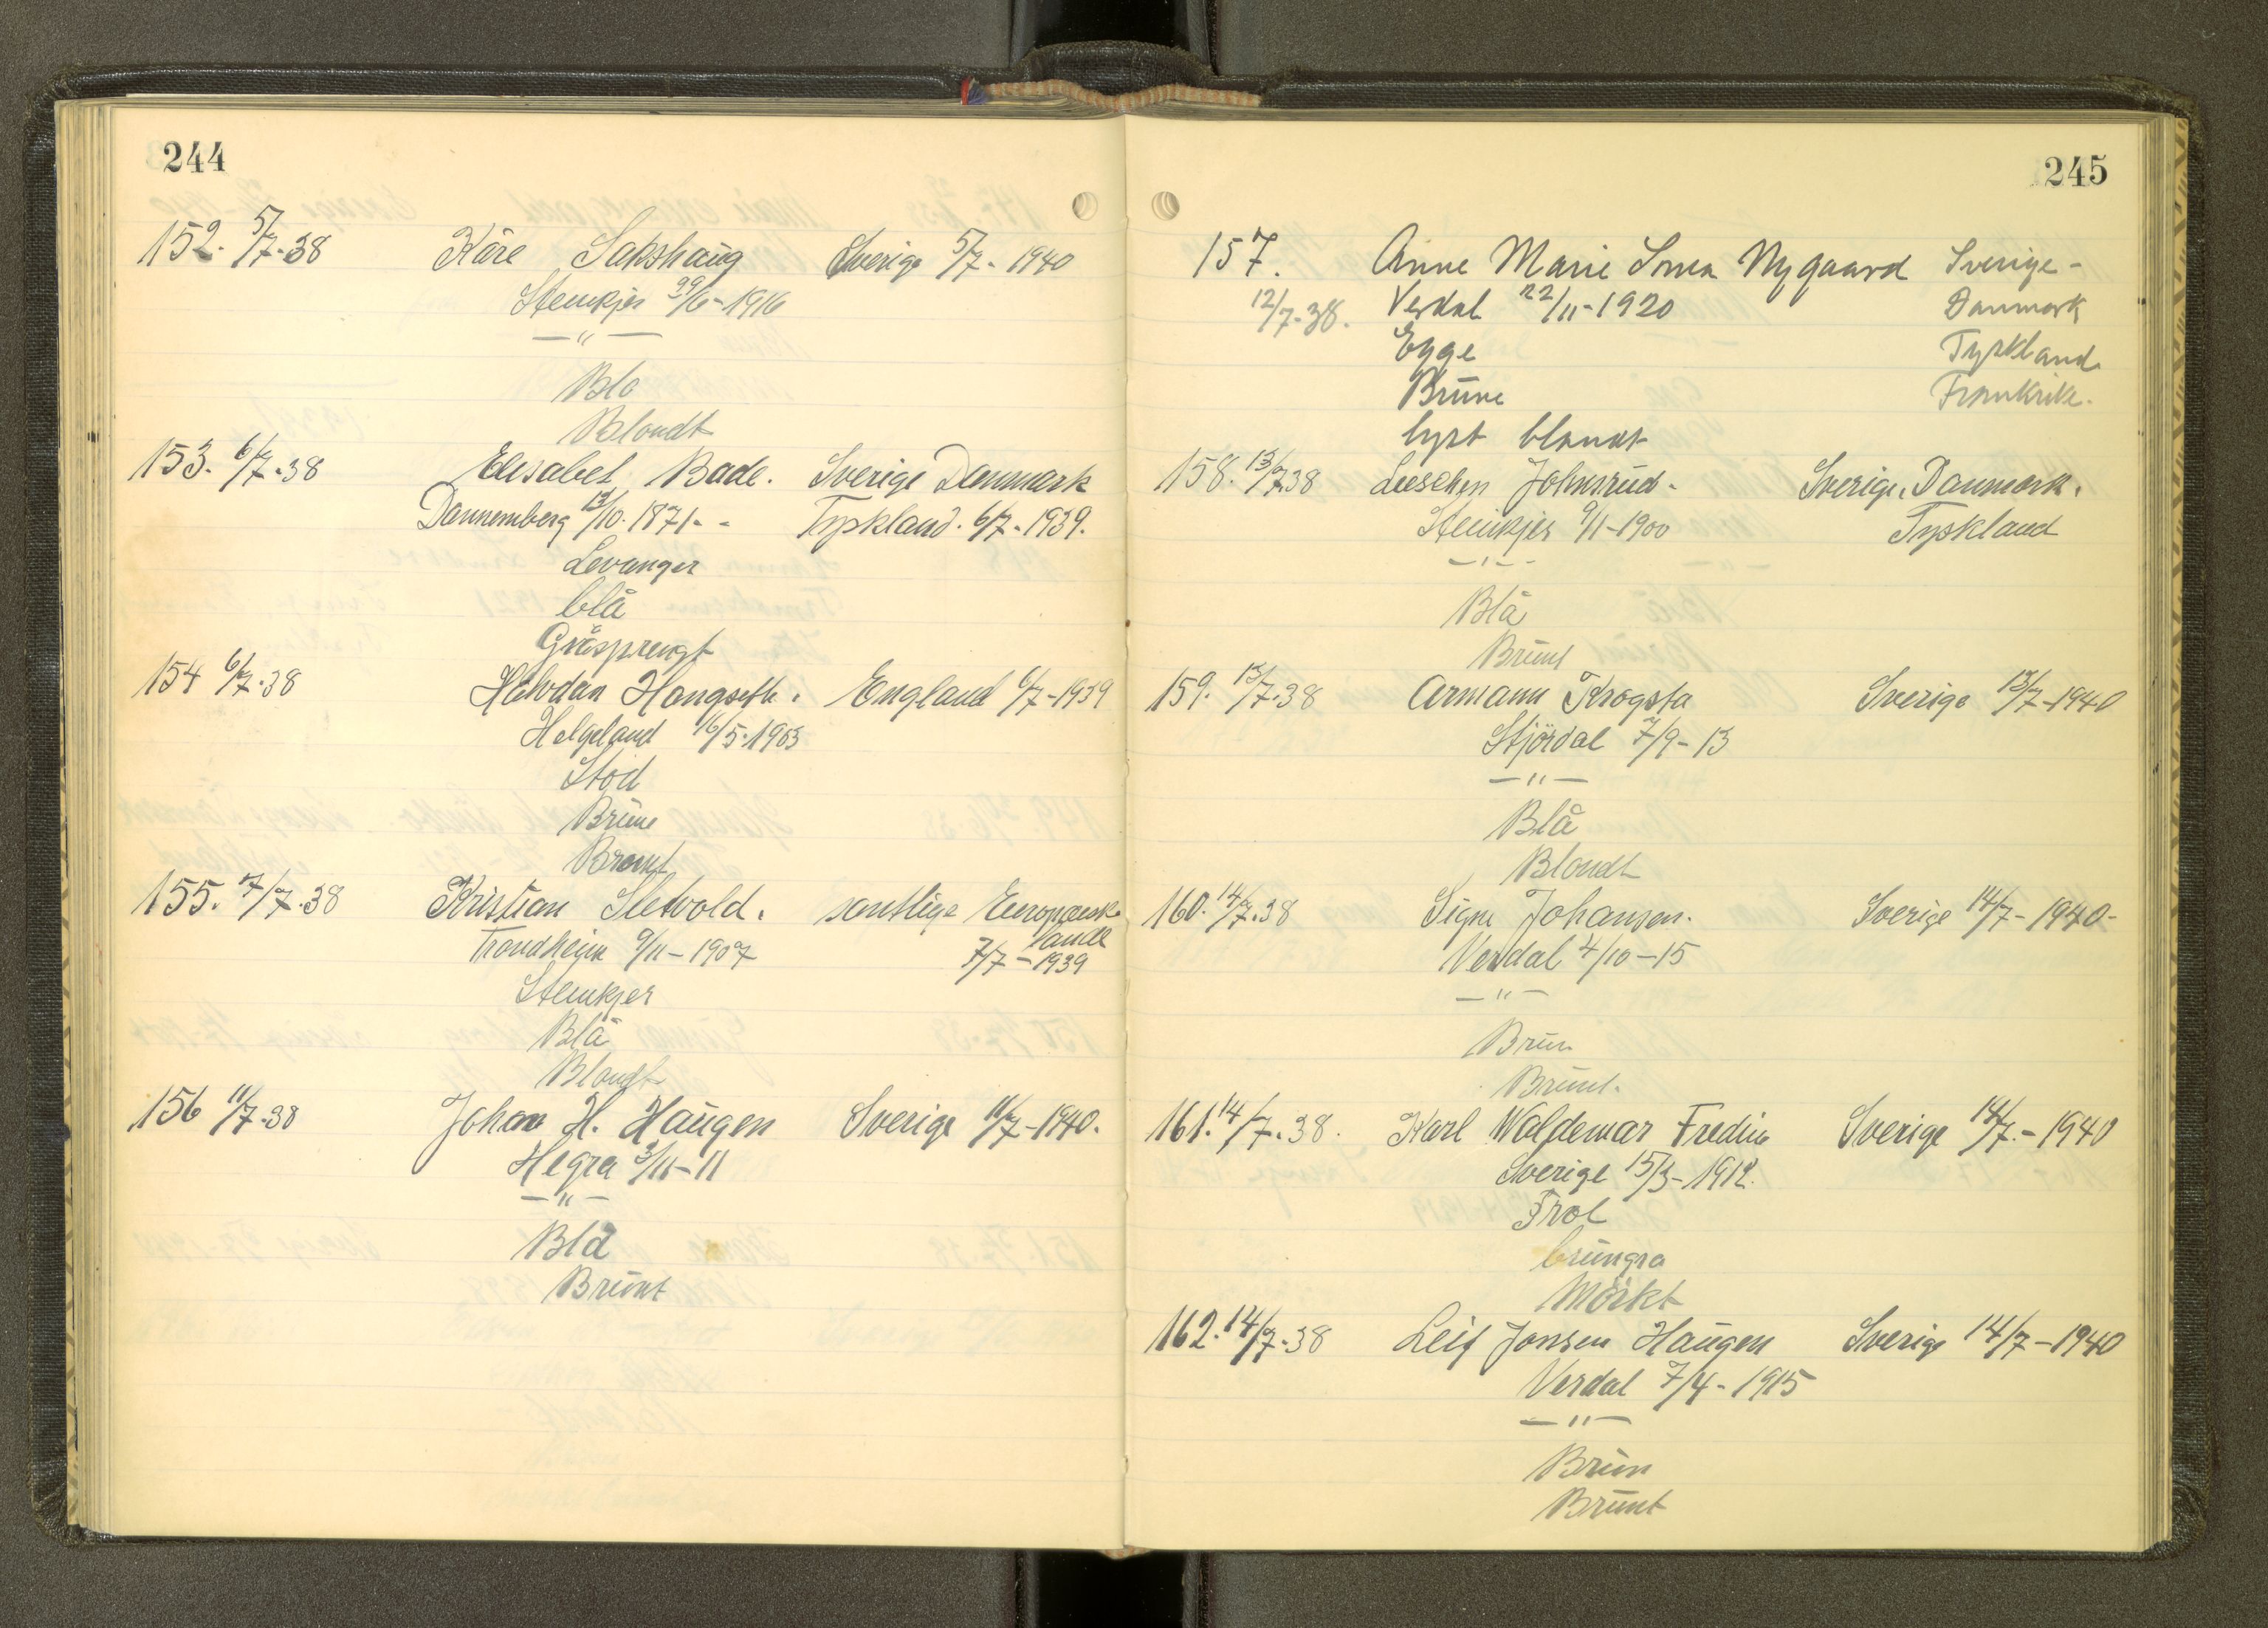 244
152. 5/7-38 Kåre Sakshaug Sverige 5/7-1940
Steinkjer 29/6-1916
—"—
Blå
Blondt
153. 6/7-38 Elisabet Bade. Sverige Danmark
Dannemberg 13/10.1871.- Tyskland. 6/7-1939.
Levanger
blå
Gråsprengt
154 6/7-38 Halvdan Hongseth. England 6/7-1939
Helgeland 16/5-1903
Stod
Brune
Brunt
155. 7/7-38 Kristian Sletvold. samtlige Europæiske
lande
Trondheim 9/11-1907 7/7-1939
Steinkjer
Blå
Blondt
156 11/7-38 Johan H. Haugen Sverige 11/7-1940.
Hegra 3/11-11
—"—
Blå
Brunt
245
157. Anne Marie Nygaard Sverige-
12/7-38. Verdal 22/11-1920 Danmark
Egge Tyskland
Brune Frankrike.
lyst blondt
158. 13/7.38 Johnsrud. Sverige, Danmark.
Steinkjer 9/1-1900 Tyskland
—"—
Blå
Brunt
159. 13/7-38 Armann Krogsta Sverige 13/7-1940
Stjördal 7/9-13
—"—
Blå
Blondt
160. 14/7.38 Signe Johansen. Sverige 14/7-1940-
Verdal 4/10-15
—"—
Brun
Brunt.
161. 14/7.38. Karl Waldemar Fredin Sverige 14/7.-1940
Sverige 15/3-1912.
Frol
brungrå
Mörkt
162. 14/7-38 Leif Jonsen Haugen Sverige 14/7-1940
Verdal 7/4-1915
—"—
Brun
Brunt